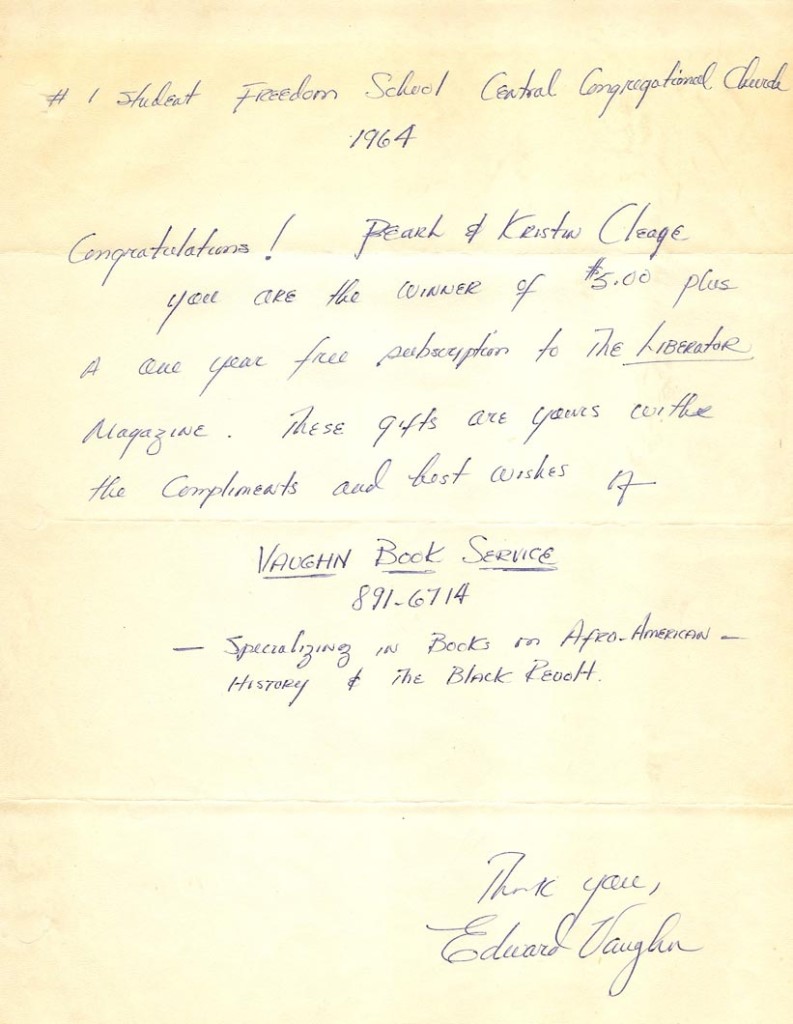 # 1 Student Freedom School Central Congregational Church
1964
Congratulations! Pearl & Kristin Cleage
you are the winner of $5.00 plus
A one year free subscription to The LIBERATOR
Magazine. These gifts are yours withe
the Compliments and best wishes of
VAUGHN BOOK SERVICE
891-6714
— Specializing in Books on Afro-American —
History & The Black Revolt.
Thank you,
Edward Vaughn